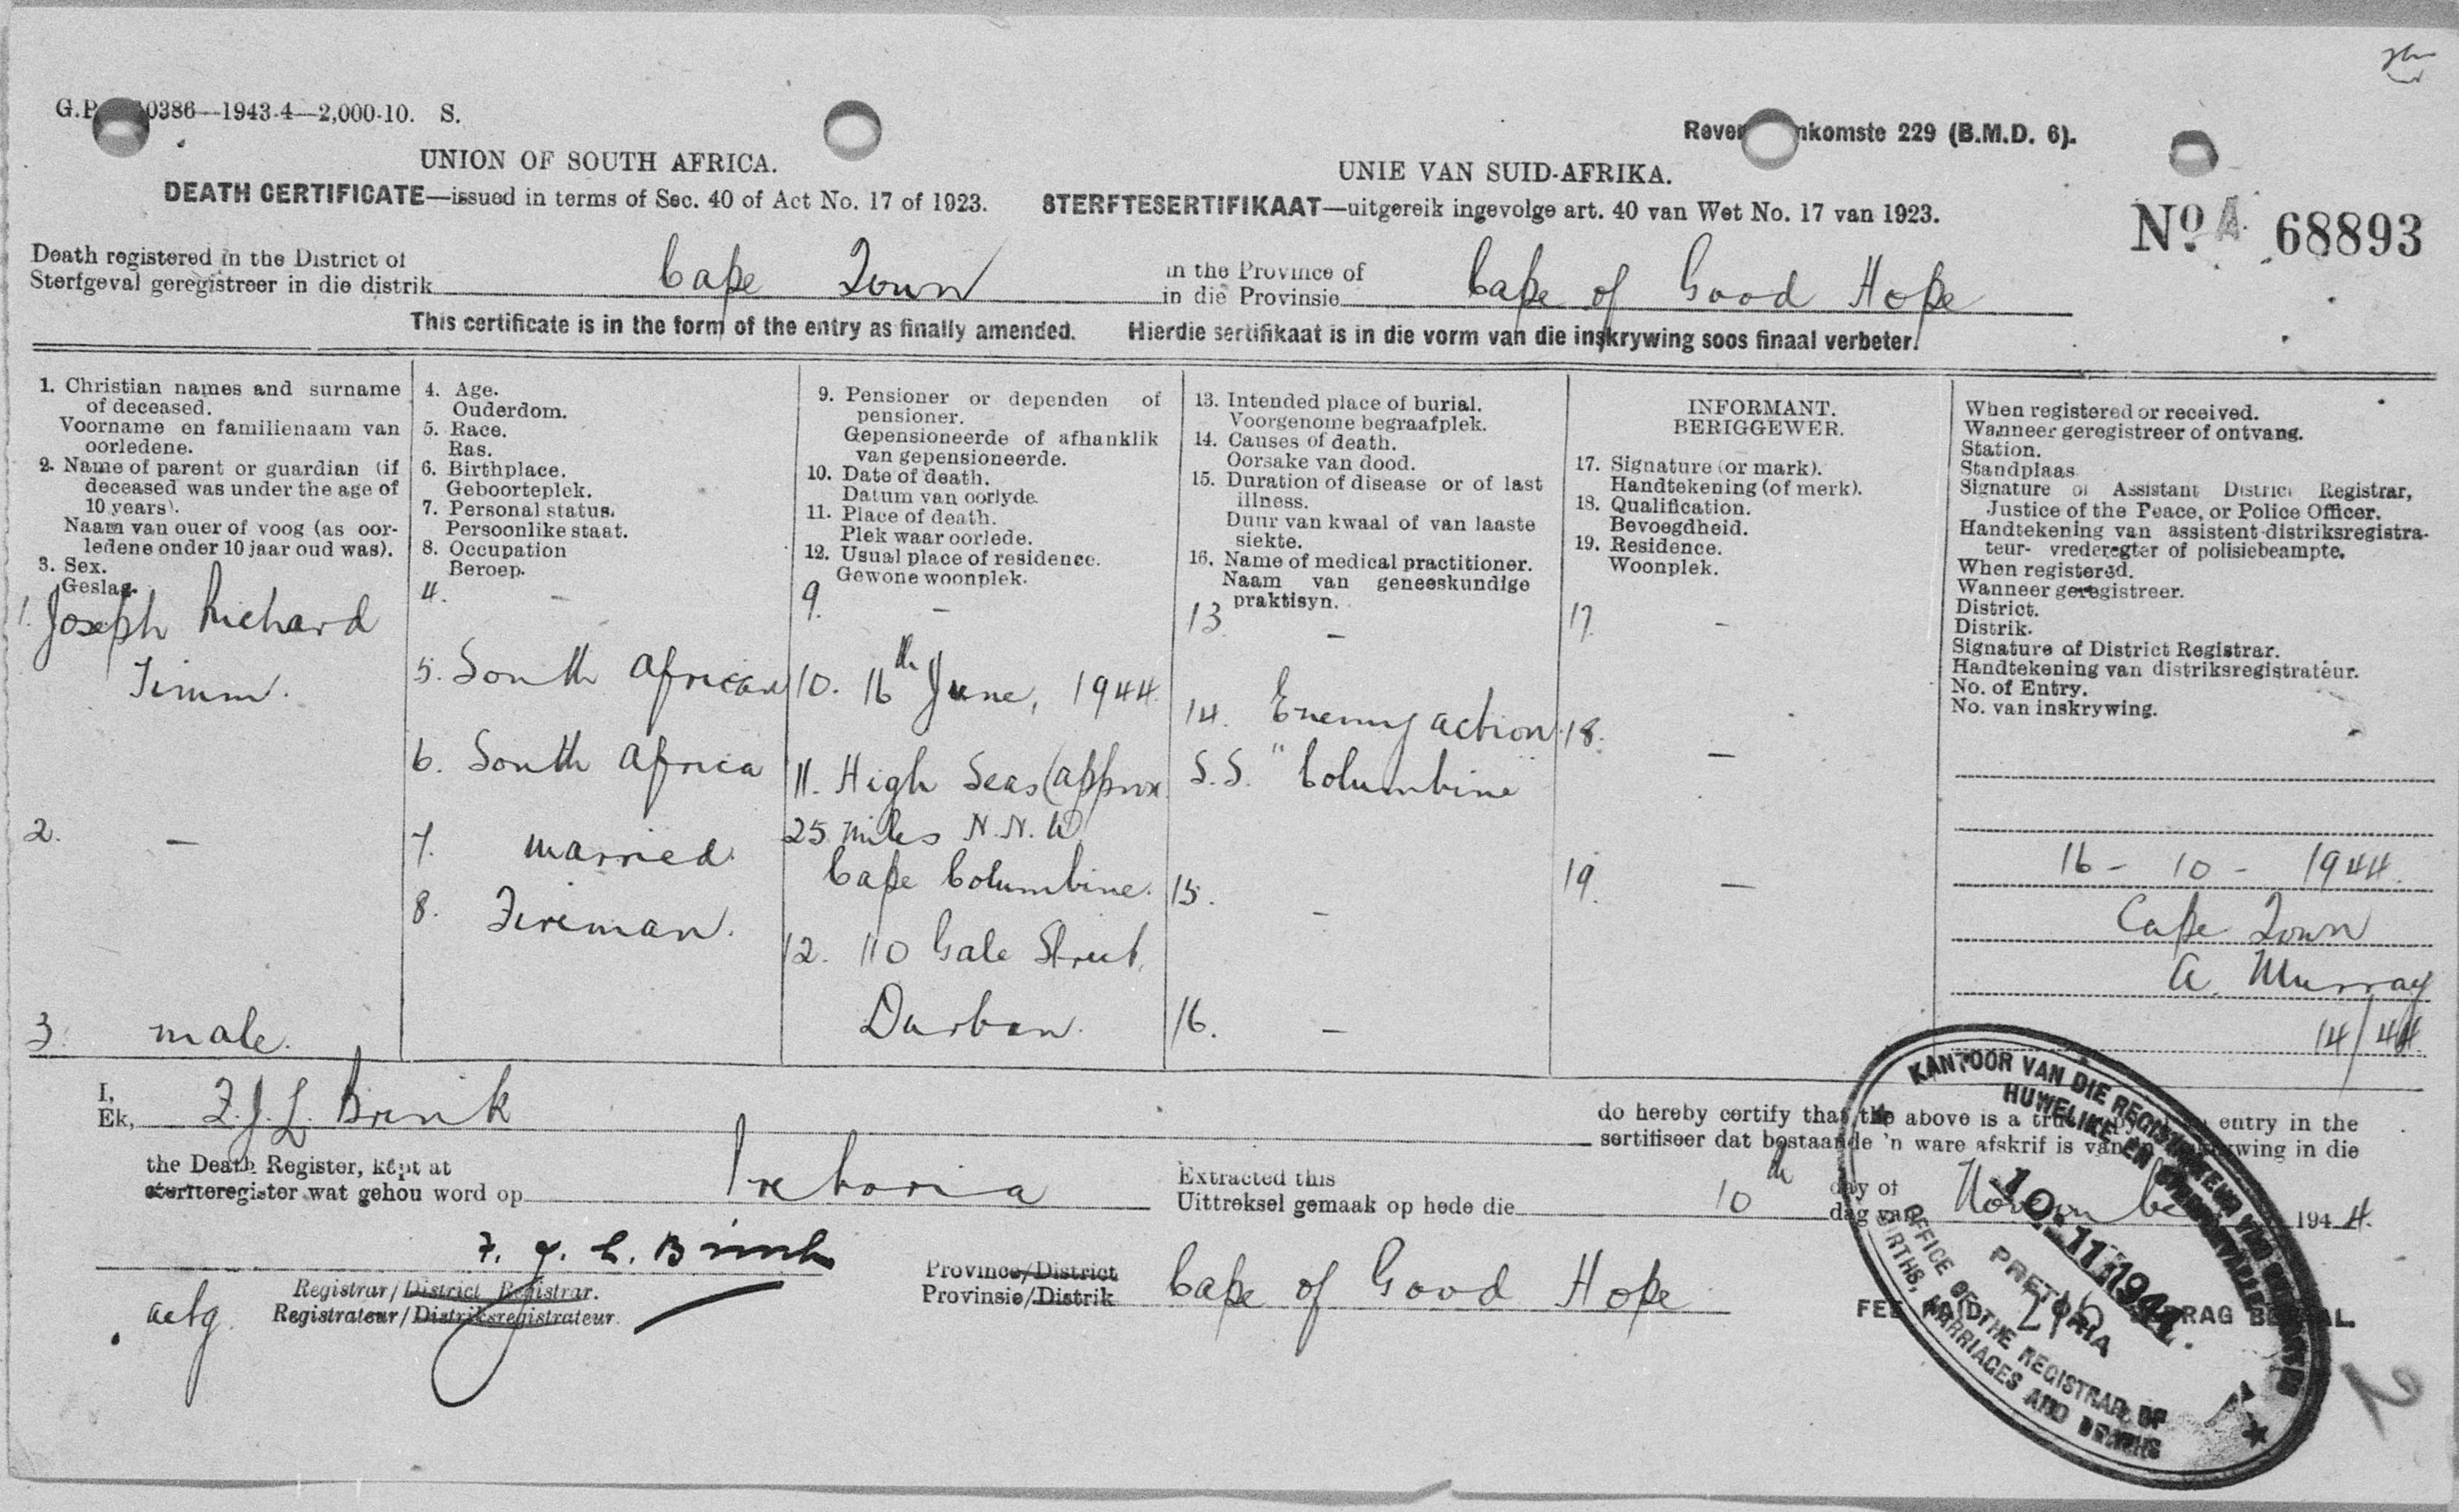 G.P. 0386—1943-4—2,000-10. S.
Reve nkomste 229 (B.M.D. 6).
UNION OF SOUTH AFRICA.
DEATH CERTIFICATE—issued in terms of Sec. 40 of Act No. 17 of 1923.
UNIE VAN SUID-AFRIKA.
STERFTESERTIFIKAAT—uitgereik ingevolge art. 40 van Wet No. 17 van 1923.
No. A 68893
Death registered in the District of
Sterfgeval geregistreer in die distrik Cape Town
in the Province of
in die Provinsie Cape of Good Hope
This certificate is in the form of the entry as finally amended. Hierdie sertifikaat is in die vorm van die inskrywing soos finaal verbeter.
1. Christian names and surname
of deceased.
Voorname en familienaam van
oorledene.
2. Name of parent or guardian (if
deceased was under the age of
10 years).
Naam van ouer of voog (as oor-
ledene onder 10 jaar oud was).
3. Sex.
Geslag.
1. Joseph Richard
Timm.
2. —
3. male.
4. Age.
Ouderdom.
5. Race.
Ras.
6. Birthplace.
Geboorteplek.
7. Personal status.
Persoonlike staat.
8. Occupation
Beroep.
4. —
5. South African
6. South Africa
7. married.
8. Fireman.
9. Pensioner or dependen of
pensioner.
Gepensioneerde of afhanklik
van gepensioneerde.
10. Date of death.
Datum van oorlyde.
11. Place of death.
Plek waar oorlede.
12. Usual place of residence.
Gewone woonplek.
9. —
10. 16th June, 1944.
11. High Seas (approx
25 miles N.N.W.
Cape Columbine.
12. 110 Gale Street,
Durban.
13. Intended place of burial.
Voorgenome begraafplek.
14. Causes of death.
Oorsake van dood.
15. Duration of disease or of last
illness.
Duur van kwaal of van laaste
siekte.
16. Name of medical practitioner.
Naam van geneeskundige
praktisyn.
13. —
14. Enemy action.
S.S. "Columbine"
15. —
16. —
INFORMANT.
BERIGGEWER.
17. Signature (or mark).
Handtekening (of merk).
18. Qualification.
Bevoegdheid.
19. Residence.
Woonplek.
17. —
18. —
19. —
When registered or received.
Wanneer geregistreer of ontvang.
Station.
Standplaas
Signature of Assistant District Registrar,
Justice of the Peace, or Police Officer.
Handtekening van assistent-distriksregistra-
teur- vrederegter of polisiebeampte.
When registered.
Wanneer geregistreer.
District.
Distrik.
Signature of District Registrar.
Handtekening van distriksregistrateur.
No. of Entry.
No. van inskrywing.
16 - 10 - 1944.
Cape Town
A. Murray
14/44.
I,
Ek, F.J.L. Brink
do hereby certify that the above is a tru entry in the
sertifiseer dat bostaande 'n ware afskrif is van wing in die
the Death Register, kept at
sterfteregister wat gehou word op Pretoria
Extracted this
Uittreksel gemaak op hede die 10th
day of
dag van November 1944.
F. J. L. Brink
Registrar/District Registrar.
Registrateur/Distriksregistrateur.
actg.
Province/District
Provinsie/Distrik Cape of Good Hope
FEE PAID 2/6 BEDRAG BETAAL.
KANTOOR VAN DIE REGISTRATEUR VAN
HUWELIKE EN
10.11.1944
PRETORIA
OFFICE OF THE REGISTRAR OF
BIRTHS, MARRIAGES AND DEATHS
2